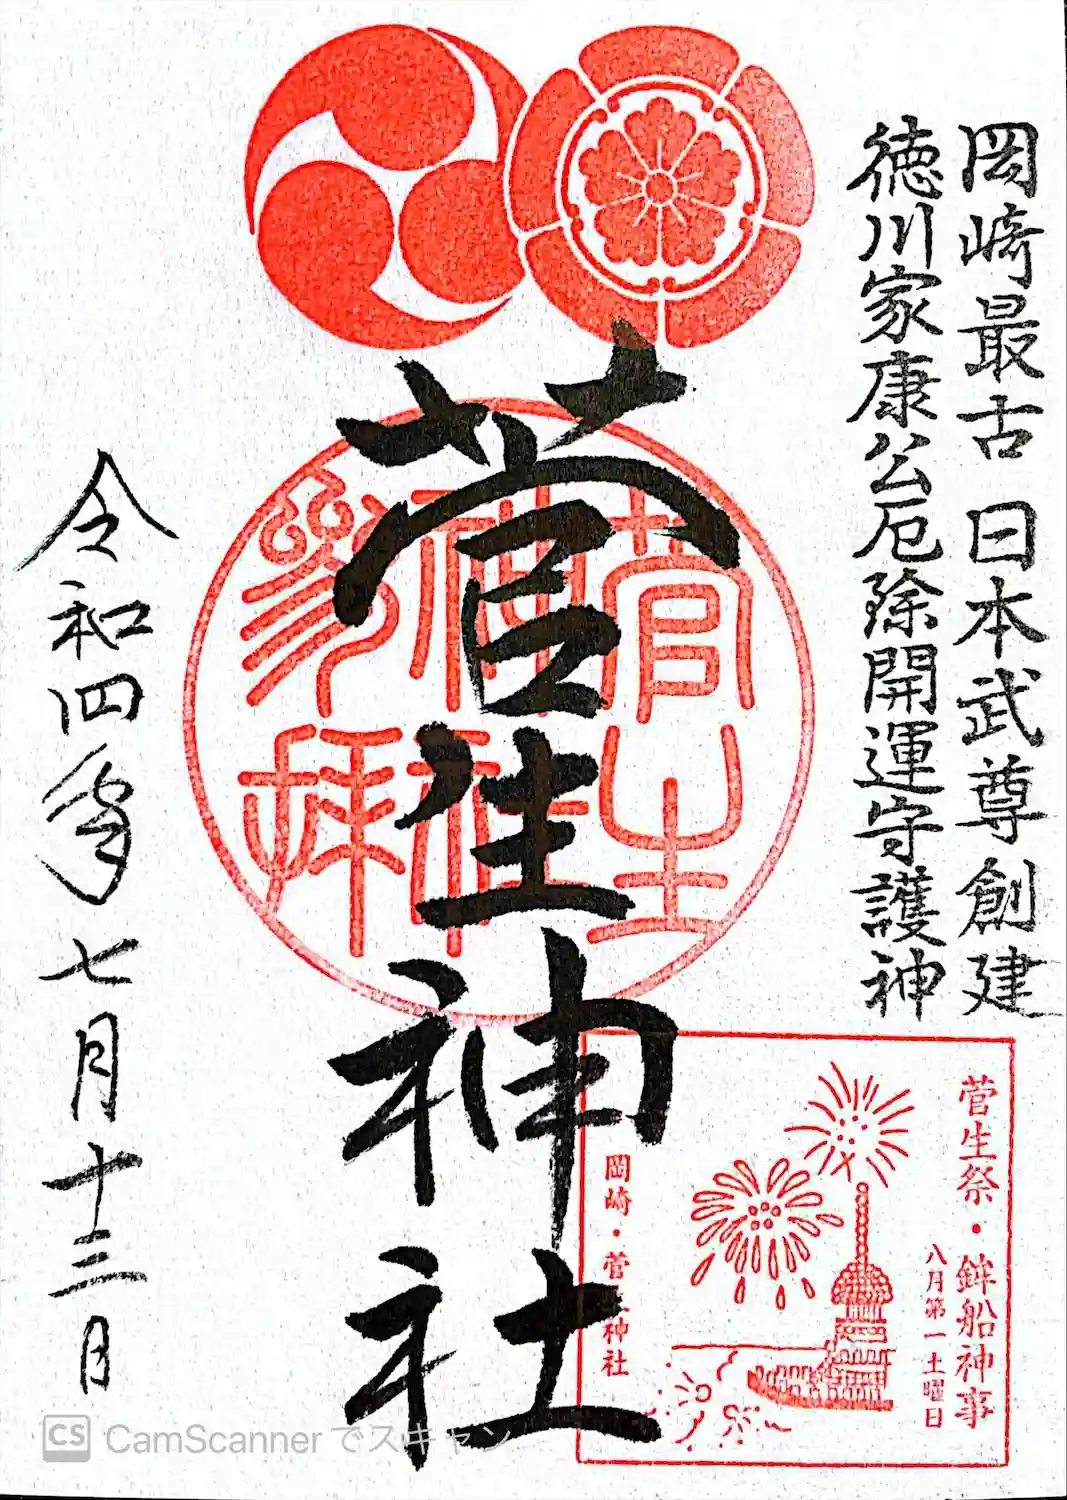 岡崎最古 日本武尊創建
徳川家康公厄除開運守護神
菅生神社
菅生
神社
参拝
令和四年七月十三日
菅生祭・鉾船神事
八月第一土曜日
岡崎・菅生神社
CS CamScannerでスキャン